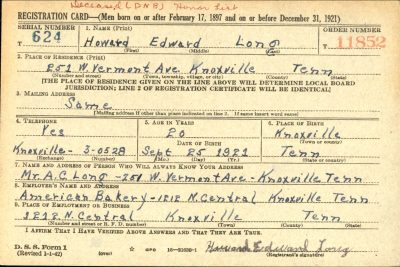 Deceased (DNB) Honor List
REGISTRATION CARD—(Men born on or after February 17, 1897 and on or before December 31, 1921)
SERIAL NUMBER 1. NAME (Print) ORDER NUMBER
624 Howard Edward Long 11852
(First) (Middle) (Last)
2. PLACE OF RESIDENCE (Print)
251 W Vermont Ave. Knoxville Tenn
(Number and street) (Town, township, village, or city) (County) (State)
[THE PLACE OF RESIDENCE GIVEN ON THE LINE ABOVE WILL DETERMINE LOCAL BOARD
JURISDICTION; LINE 2 OF REGISTRATION CERTIFICATE WILL BE IDENTICAL]
3. MAILING ADDRESS
Same
[Mailing address if other than place indicated on line 2. If same insert word same]
4. TELEPHONE 5. AGE IN YEARS 6. PLACE OF BIRTH
Yes 20 Knoxville
DATE OF BIRTH (Town or county)
Knoxville- 3-0528 Sept. 25 1921 Tenn
(Exchange) (Number) (Mo.) (Day) (Yr.) (State or country)
7. NAME AND ADDRESS OF PERSON WHO WILL ALWAYS KNOW YOUR ADDRESS
Mr. A.C. Long - 251 W. Vermont Ave - Knoxville Tenn
8. EMPLOYER'S NAME AND ADDRESS
American Bakery - 1818 N. Central Knoxville Tenn
9. PLACE OF EMPLOYMENT OR BUSINESS
1818 N. Central Knoxville Tenn
(Number and street or R. F. D. number) (Town) (County) (State)
I AFFIRM THAT I HAVE VERIFIED ABOVE ANSWERS AND THAT THEY ARE TRUE.
D. S. S. Form 1 Howard Edward Long
(Revised 1-1-42) (over) (Registrant's signature)